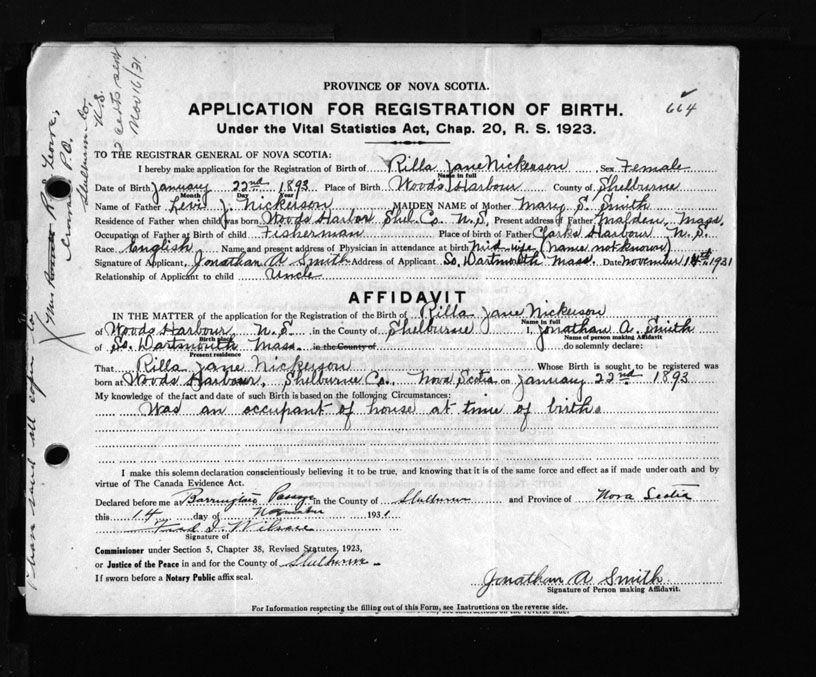 PROVINCE OF NOVA SCOTIA.
APPLICATION FOR REGISTRATION OF BIRTH.
664
Under the Vital Statistics Act, Chap. 20, R. S. 1923.
TO THE REGISTRAR GENERAL OF NOVA SCOTIA:
I hereby make application for the Registration of Birth of Rilla Jane Nickerson Sex Female
Name in full
Date of Birth January 22nd 1893 Place of Birth Woods Harbour County of Shelburne
Month Day Year
Name of Father Levi J. Nickerson MAIDEN NAME of Mother Mary S. Smith
Residence of Father when child was born Woods Harbor Shel. Co. N.S. Present address of Father Malden, Mass.
Occupation of Father at Birth of child Fisherman Place of birth of Father Clarks Harbour N.S.
Race English Name and present address of Physician in attendance at birth Mid wife (name not known)
Signature of Applicant Jonathan A Smith Address of Applicant So. Dartmouth Mass. Date November 14th 1931
Relationship of Applicant to child Uncle
AFFIDAVIT
IN THE MATTER of the application for the Registration of the Birth of Rilla Jane Nickerson
Name in full
of Woods Harbour, N.S. in the County of Shelburne I, Jonathan A. Smith
Birth place Name of person making Affidavit
of So. Dartmouth Mass. in the County of do solemnly declare:
Present residence
That Rilla Jane Nickerson Whose Birth is sought to be registered was
born at Woods Harbour, Shelburne Co., Nova Scotia on January 22nd 1893
My knowledge of the fact and date of such Birth is based on the following Circumstances:
Was an occupant of house at time of birth.
I make this solemn declaration conscientiously believing it to be true, and knowing that it is of the same force and effect as if made under oath and by
virtue of The Canada Evidence Act.
Declared before me at Barrington Passage in the County of Shelburne and Province of Nova Scotia
this 14 day of November 1931
Signature of
Commissioner under Section 5, Chapter 38, Revised Statutes, 1923,
or Justice of the Peace in and for the County of Shelburne
If sworn before a Notary Public affix seal.
Jonathan A Smith
Signature of Person making Affidavit.
For Information respecting the filling out of this Form, see Instructions on the reverse side.
P.O.
Shelburne Co.
N.S.
2 certs sent
Nov 16/31